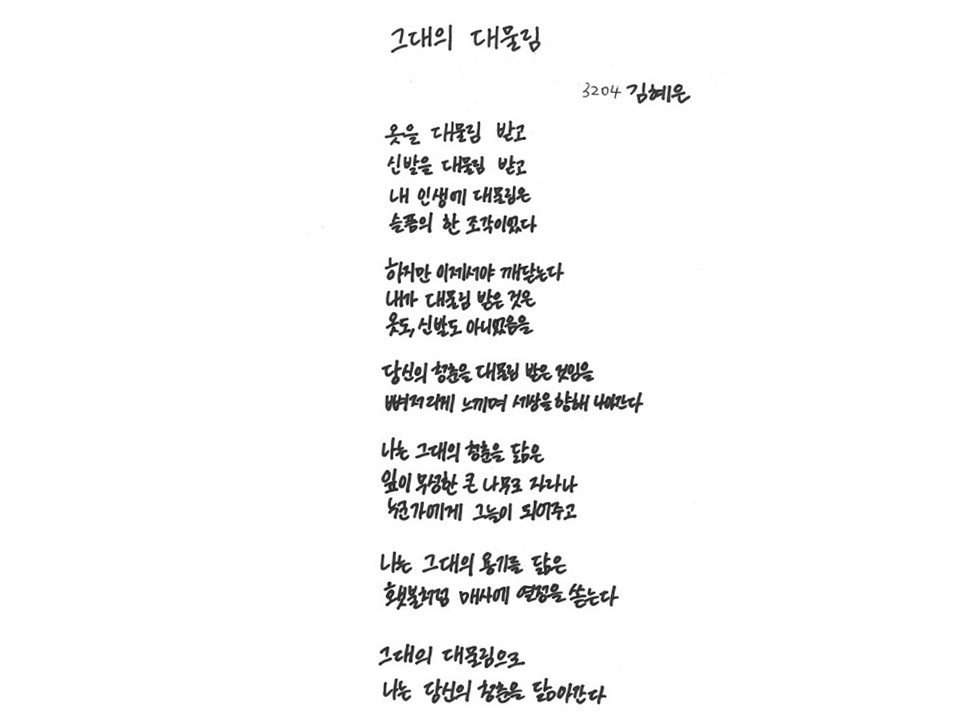 그대의 대물림
3204 김혜은
옷을 대물림 받고
신발을 대물림 받고
내 인생에 대물림은
슬픔의 한 조각이었다
하지만 이제서야 깨닫는다
내가 대물림 받은 것은
옷도, 신발도 아니었음을
당신의 청춘을 대물림 받은 것임을
뼈저리게 느끼며 세상을 향해 나아간다
나는 그대의 청춘을 닮은
잎이 무성한 큰 나무로 자라나
누군가에게 그늘이 되어주고
나는 그대의 용기를 닮은
횃불처럼 매사에 열정을 쏟는다
그대의 대물림으로
나는 당신의 청춘을 닮아간다